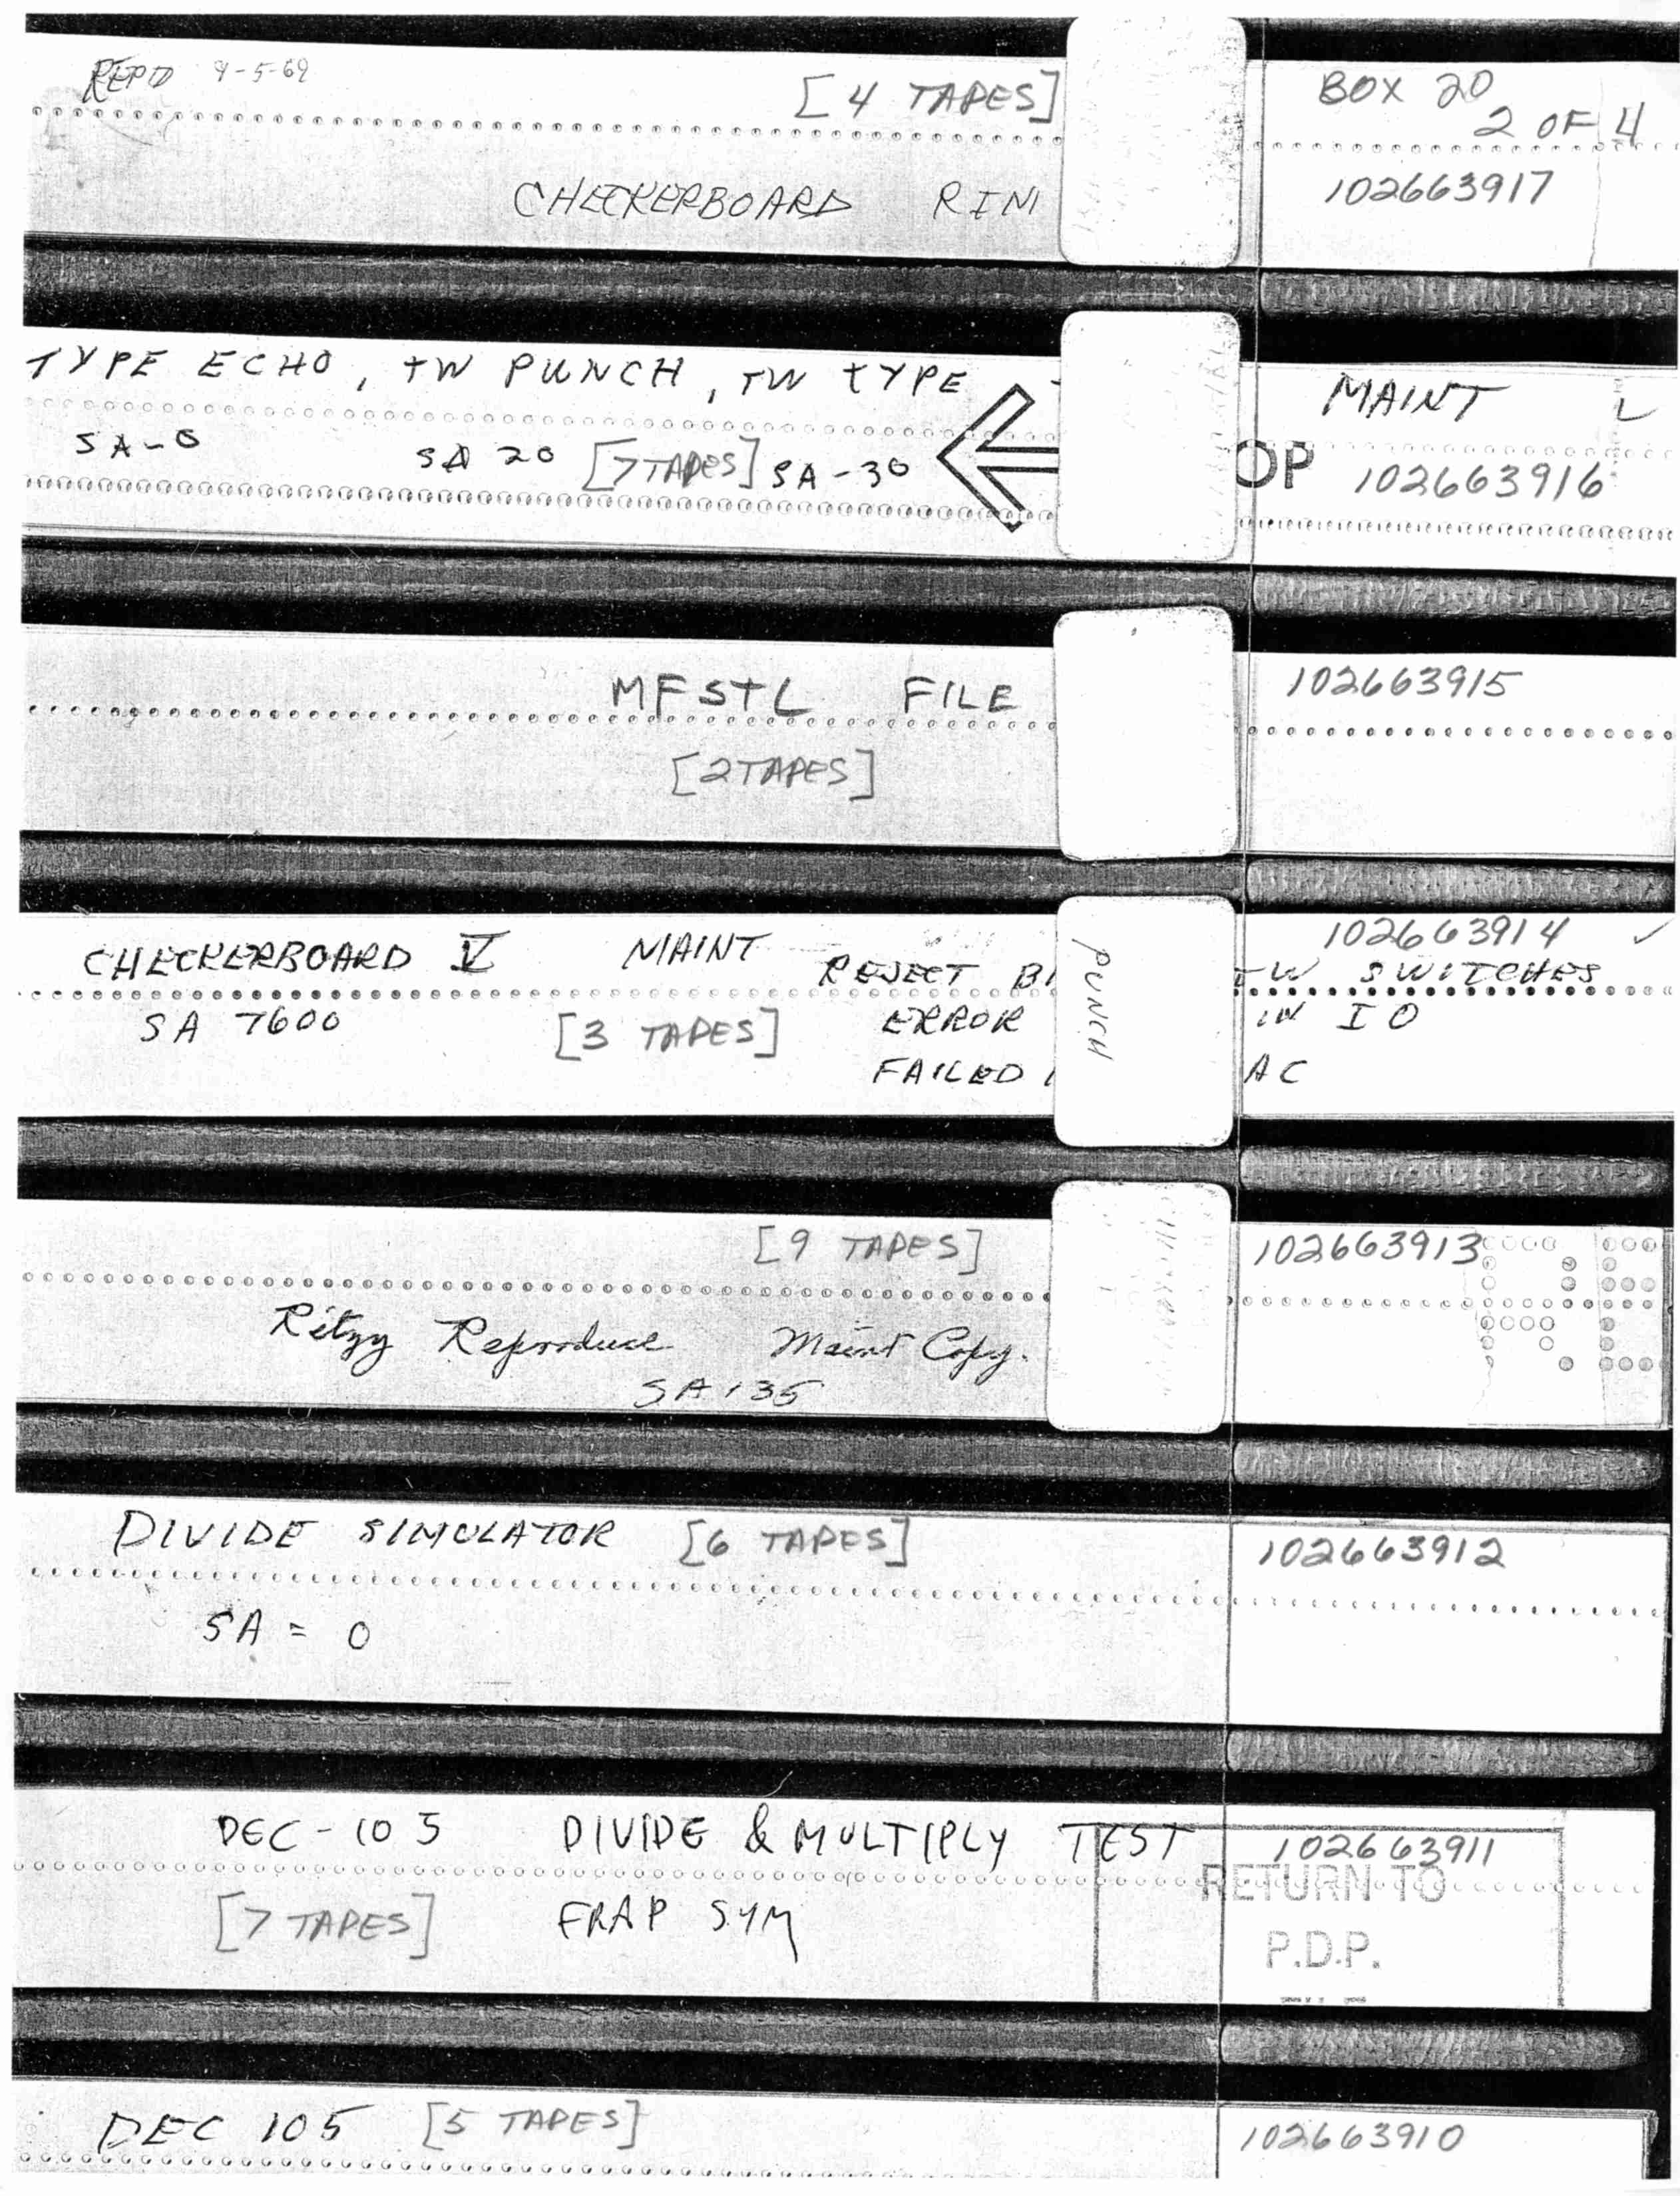 REP'D 9-5-69
[4 TAPES]
BOX 20
2 OF 4
CHECKERBOARD RIM
102663917
TYPE ECHO, TW PUNCH, TW TYPE
MAINT
SA-0 SA 20 [7 TAPES] SA-30
OP
102663916
MFSTL FILE
102663915
[2 TAPES]
102663914
CHECKERBOARD V MAINT
REJECT TW SWITCHES
SA 7600 [3 TAPES]
ERROR IN IO
FAILED AC
PUNCH
[9 TAPES]
102663913
Ritzy Reproduce Maint Copy.
SA 135
DIVIDE SIMULATOR [6 TAPES]
102663912
SA = 0
DEC-105 DIVIDE & MULTIPLY TEST
102663911
RETURN TO
[7 TAPES] FRAP SYM
P.D.P.
DEC 105 [5 TAPES]
102663910